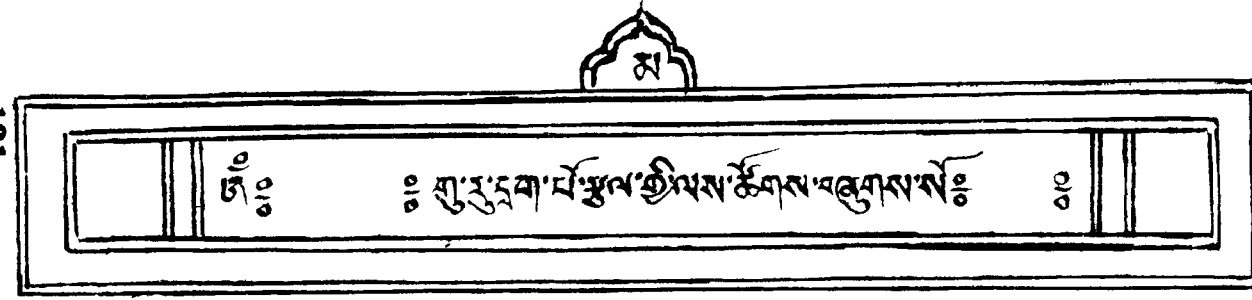 མ
ༀ༔ ༔ གུ་རུ་དྲག་པོ་རྩལ་གྱི་ལས་ཚོགས་བཞུགས་སོ༔ ༔